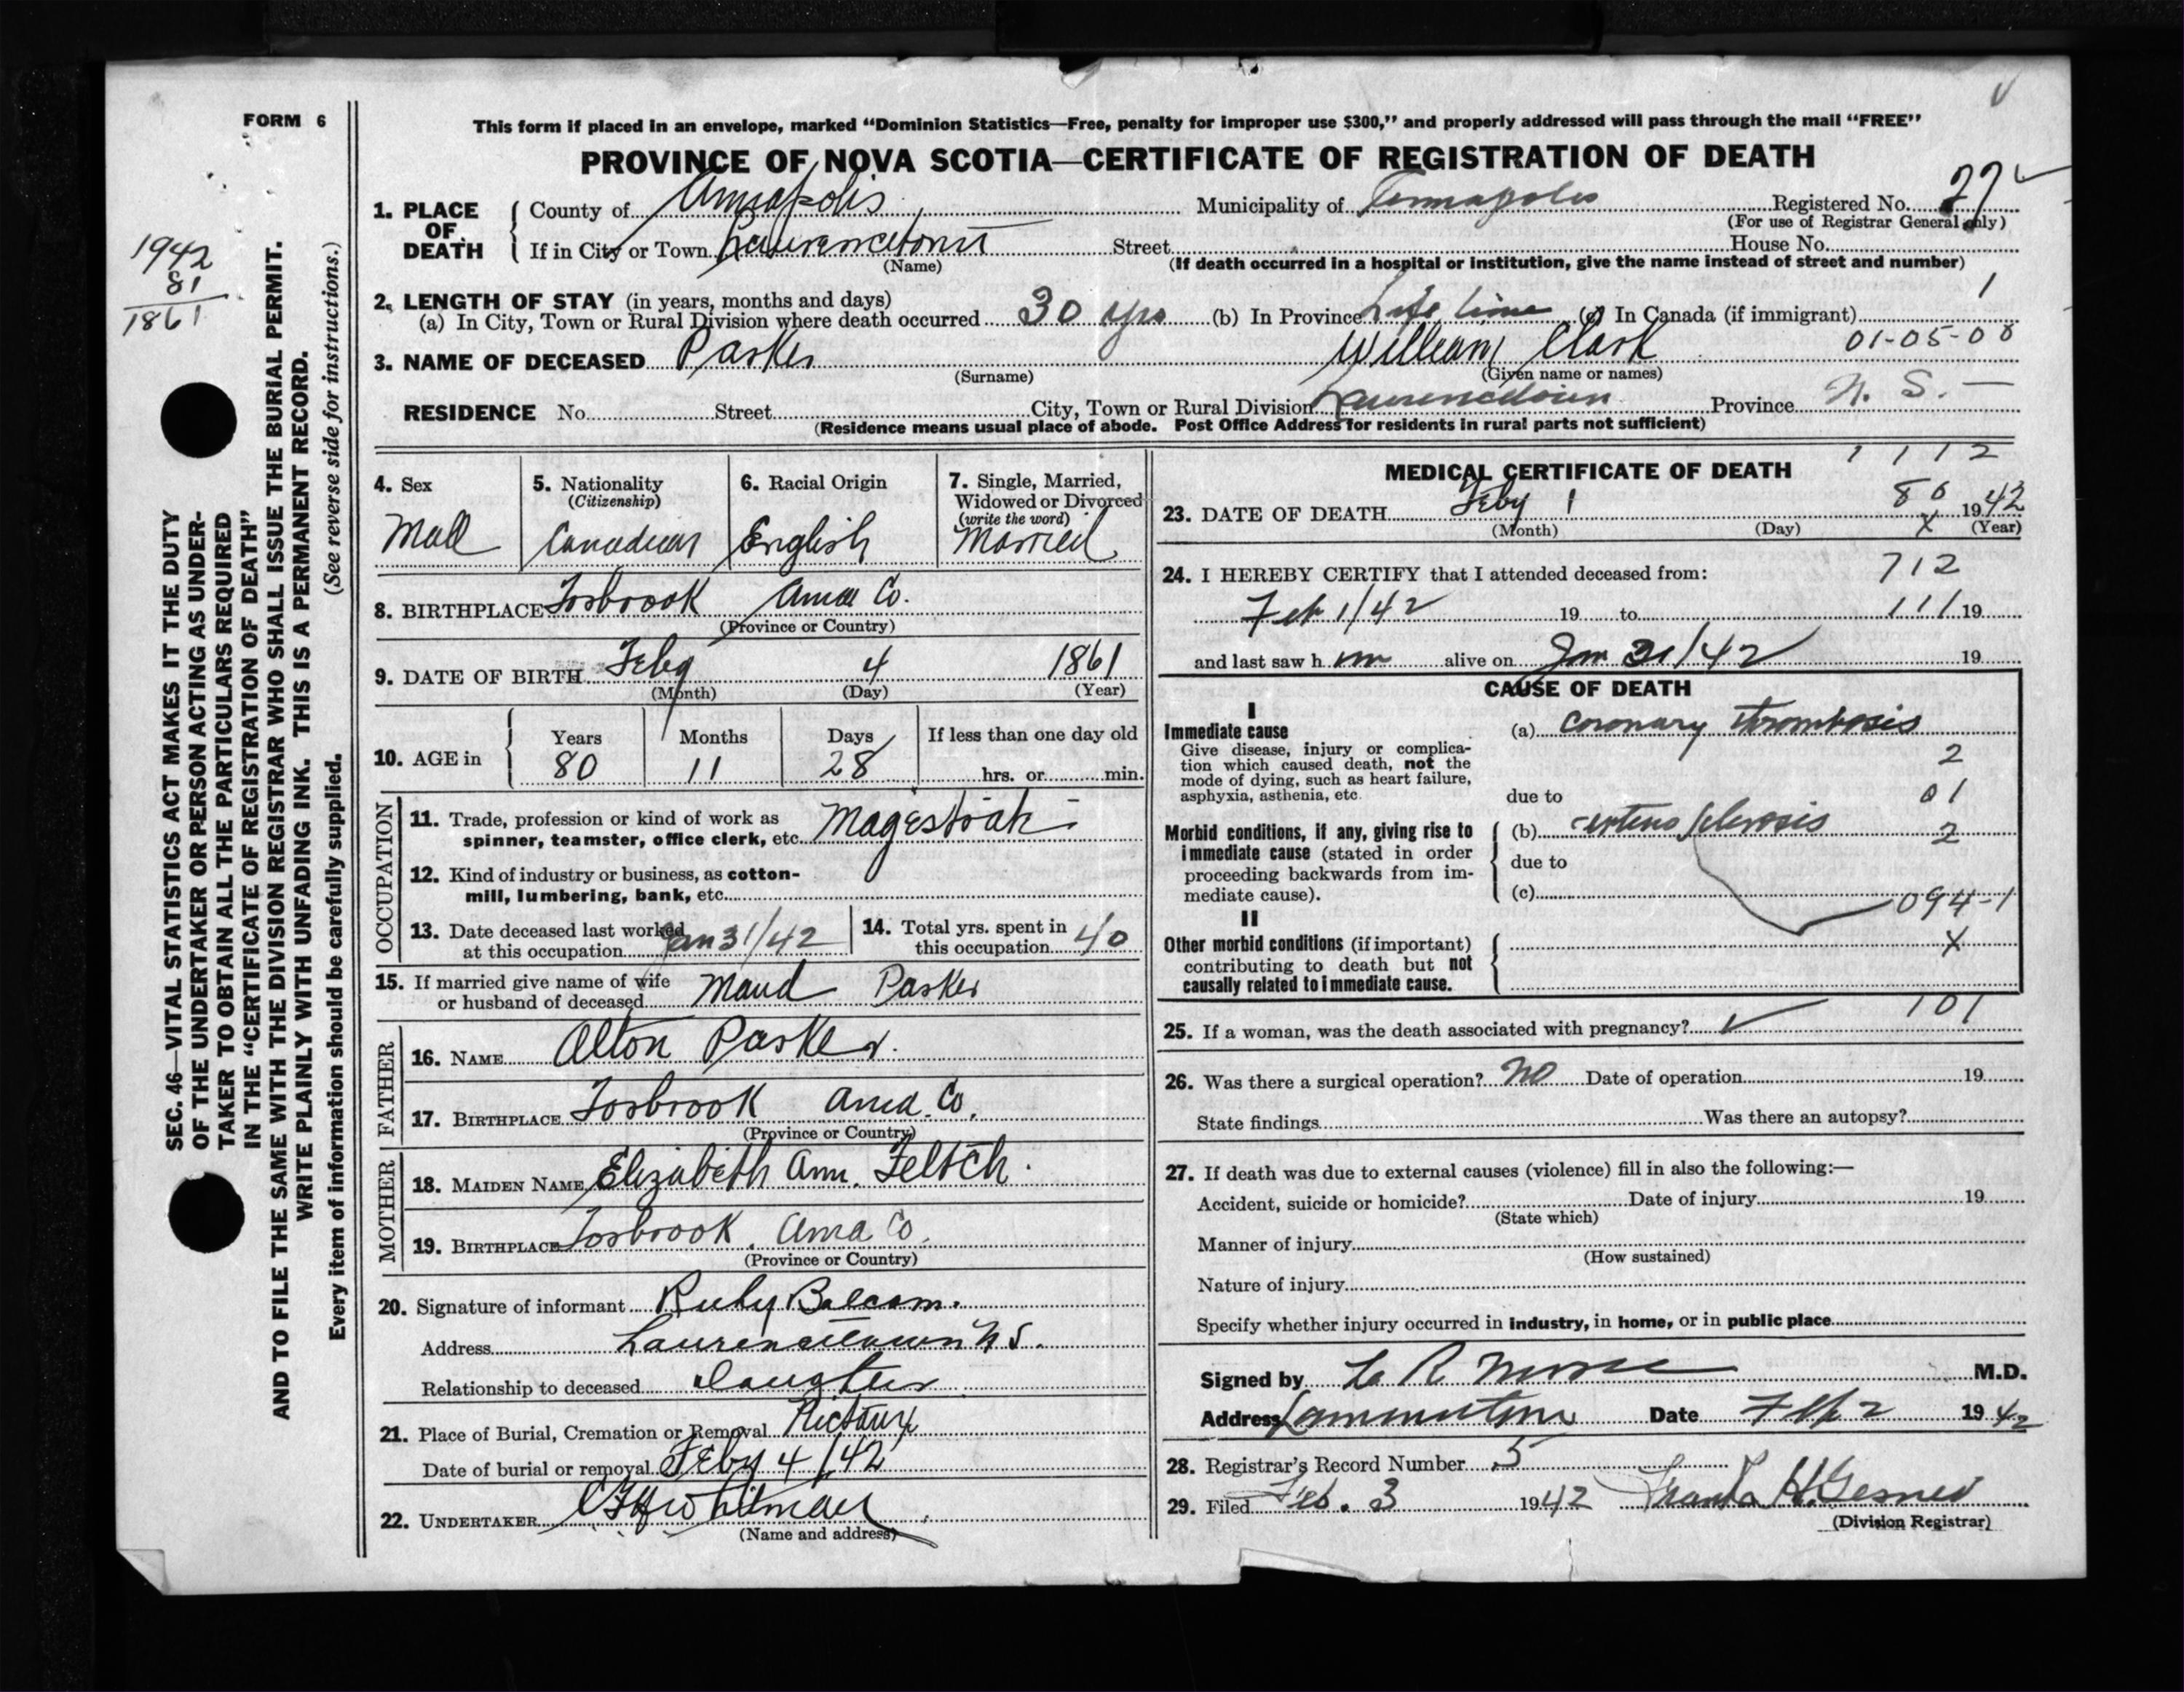 FORM 6
This form if placed in an envelope, marked "Dominion Statistics—Free, penalty for improper use $300," and properly addressed will pass through the mail "FREE"
PROVINCE OF NOVA SCOTIA—CERTIFICATE OF REGISTRATION OF DEATH
1942
81
1861
SEC. 46—VITAL STATISTICS ACT MAKES IT THE DUTY
OF THE UNDERTAKER OR PERSON ACTING AS UNDER-
TAKER TO OBTAIN ALL THE PARTICULARS REQUIRED
IN THE "CERTIFICATE OF REGISTRATION OF DEATH"
AND TO FILE THE SAME WITH THE DIVISION REGISTRAR WHO SHALL ISSUE THE BURIAL PERMIT.
WRITE PLAINLY WITH UNFADING INK. THIS IS A PERMANENT RECORD.
Every item of information should be carefully supplied. (See reverse side for instructions.)
1. PLACE OF DEATH County of Annapolis Municipality of Annapolis Registered No. 27
(For use of Registrar General only)
If in City or Town Lawrencetown Street House No.
(Name) (If death occurred in a hospital or institution, give the name instead of street and number)
2. LENGTH OF STAY (in years, months and days) 1
(a) In City, Town or Rural Division where death occurred 30 yrs (b) In Province Life time (c) In Canada (if immigrant)
3. NAME OF DECEASED Parker William Clark 01-05-00
(Surname) (Given name or names)
RESIDENCE No. Street City, Town or Rural Division Lawrencetown Province N. S. —
(Residence means usual place of abode. Post Office Address for residents in rural parts not sufficient)
4. Sex 5. Nationality (Citizenship) 6. Racial Origin 7. Single, Married, Widowed or Divorced (write the word)
Male Canadian English Married
8. BIRTHPLACE Torbrook Anna Co.
(Province or Country)
9. DATE OF BIRTH Feby 4 1861
(Month) (Day) (Year)
10. AGE in Years Months Days If less than one day old
80 11 28 hrs. or min.
OCCUPATION
11. Trade, profession or kind of work as
spinner, teamster, office clerk, etc. Magestrate
12. Kind of industry or business, as cotton-
mill, lumbering, bank, etc.
13. Date deceased last worked
at this occupation Jan 31/42
14. Total yrs. spent in
this occupation 40
15. If married give name of wife
or husband of deceased Maud Parker
FATHER
16. NAME Alton Parker.
17. BIRTHPLACE Torbrook Anna. Co.
(Province or Country)
MOTHER
18. MAIDEN NAME Elizabeth Ann. Feltch.
19. BIRTHPLACE Torbrook. Anna Co.
(Province or Country)
20. Signature of informant Ruby Balcom.
Address Lawrencetown N S.
Relationship to deceased Daughter
21. Place of Burial, Cremation or Removal Nictaux
Date of burial or removal Feby 4/42
22. UNDERTAKER Whitman
(Name and address)
1 1 1 2
MEDICAL CERTIFICATE OF DEATH
23. DATE OF DEATH Feby 1 80 1942
(Month) (Day) X (Year)
24. I HEREBY CERTIFY that I attended deceased from: 712
Feb 1/42 19 to 111 19
and last saw h im alive on Jan 31/42 19
CAUSE OF DEATH
I
Immediate cause (a) coronary thrombosis
Give disease, injury or complica-
tion which caused death, not the 2
mode of dying, such as heart failure,
asphyxia, asthenia, etc. due to 01
Morbid conditions, if any, giving rise to (b) arterio sclerosis 2
immediate cause (stated in order
proceeding backwards from im- due to
mediate cause). (c) 094-1
II
Other morbid conditions (if important) X
contributing to death but not
causally related to immediate cause.
25. If a woman, was the death associated with pregnancy? 101
26. Was there a surgical operation? No Date of operation 19
State findings Was there an autopsy?
27. If death was due to external causes (violence) fill in also the following:—
Accident, suicide or homicide? Date of injury 19
(State which)
Manner of injury
(How sustained)
Nature of injury
Specify whether injury occurred in industry, in home, or in public place
Signed by L R Morse M.D.
Address Lawrencetown Date Feb 2 1942
28. Registrar's Record Number 5
29. Filed Feb. 3 1942 Frank H. Gesner
(Division Registrar)